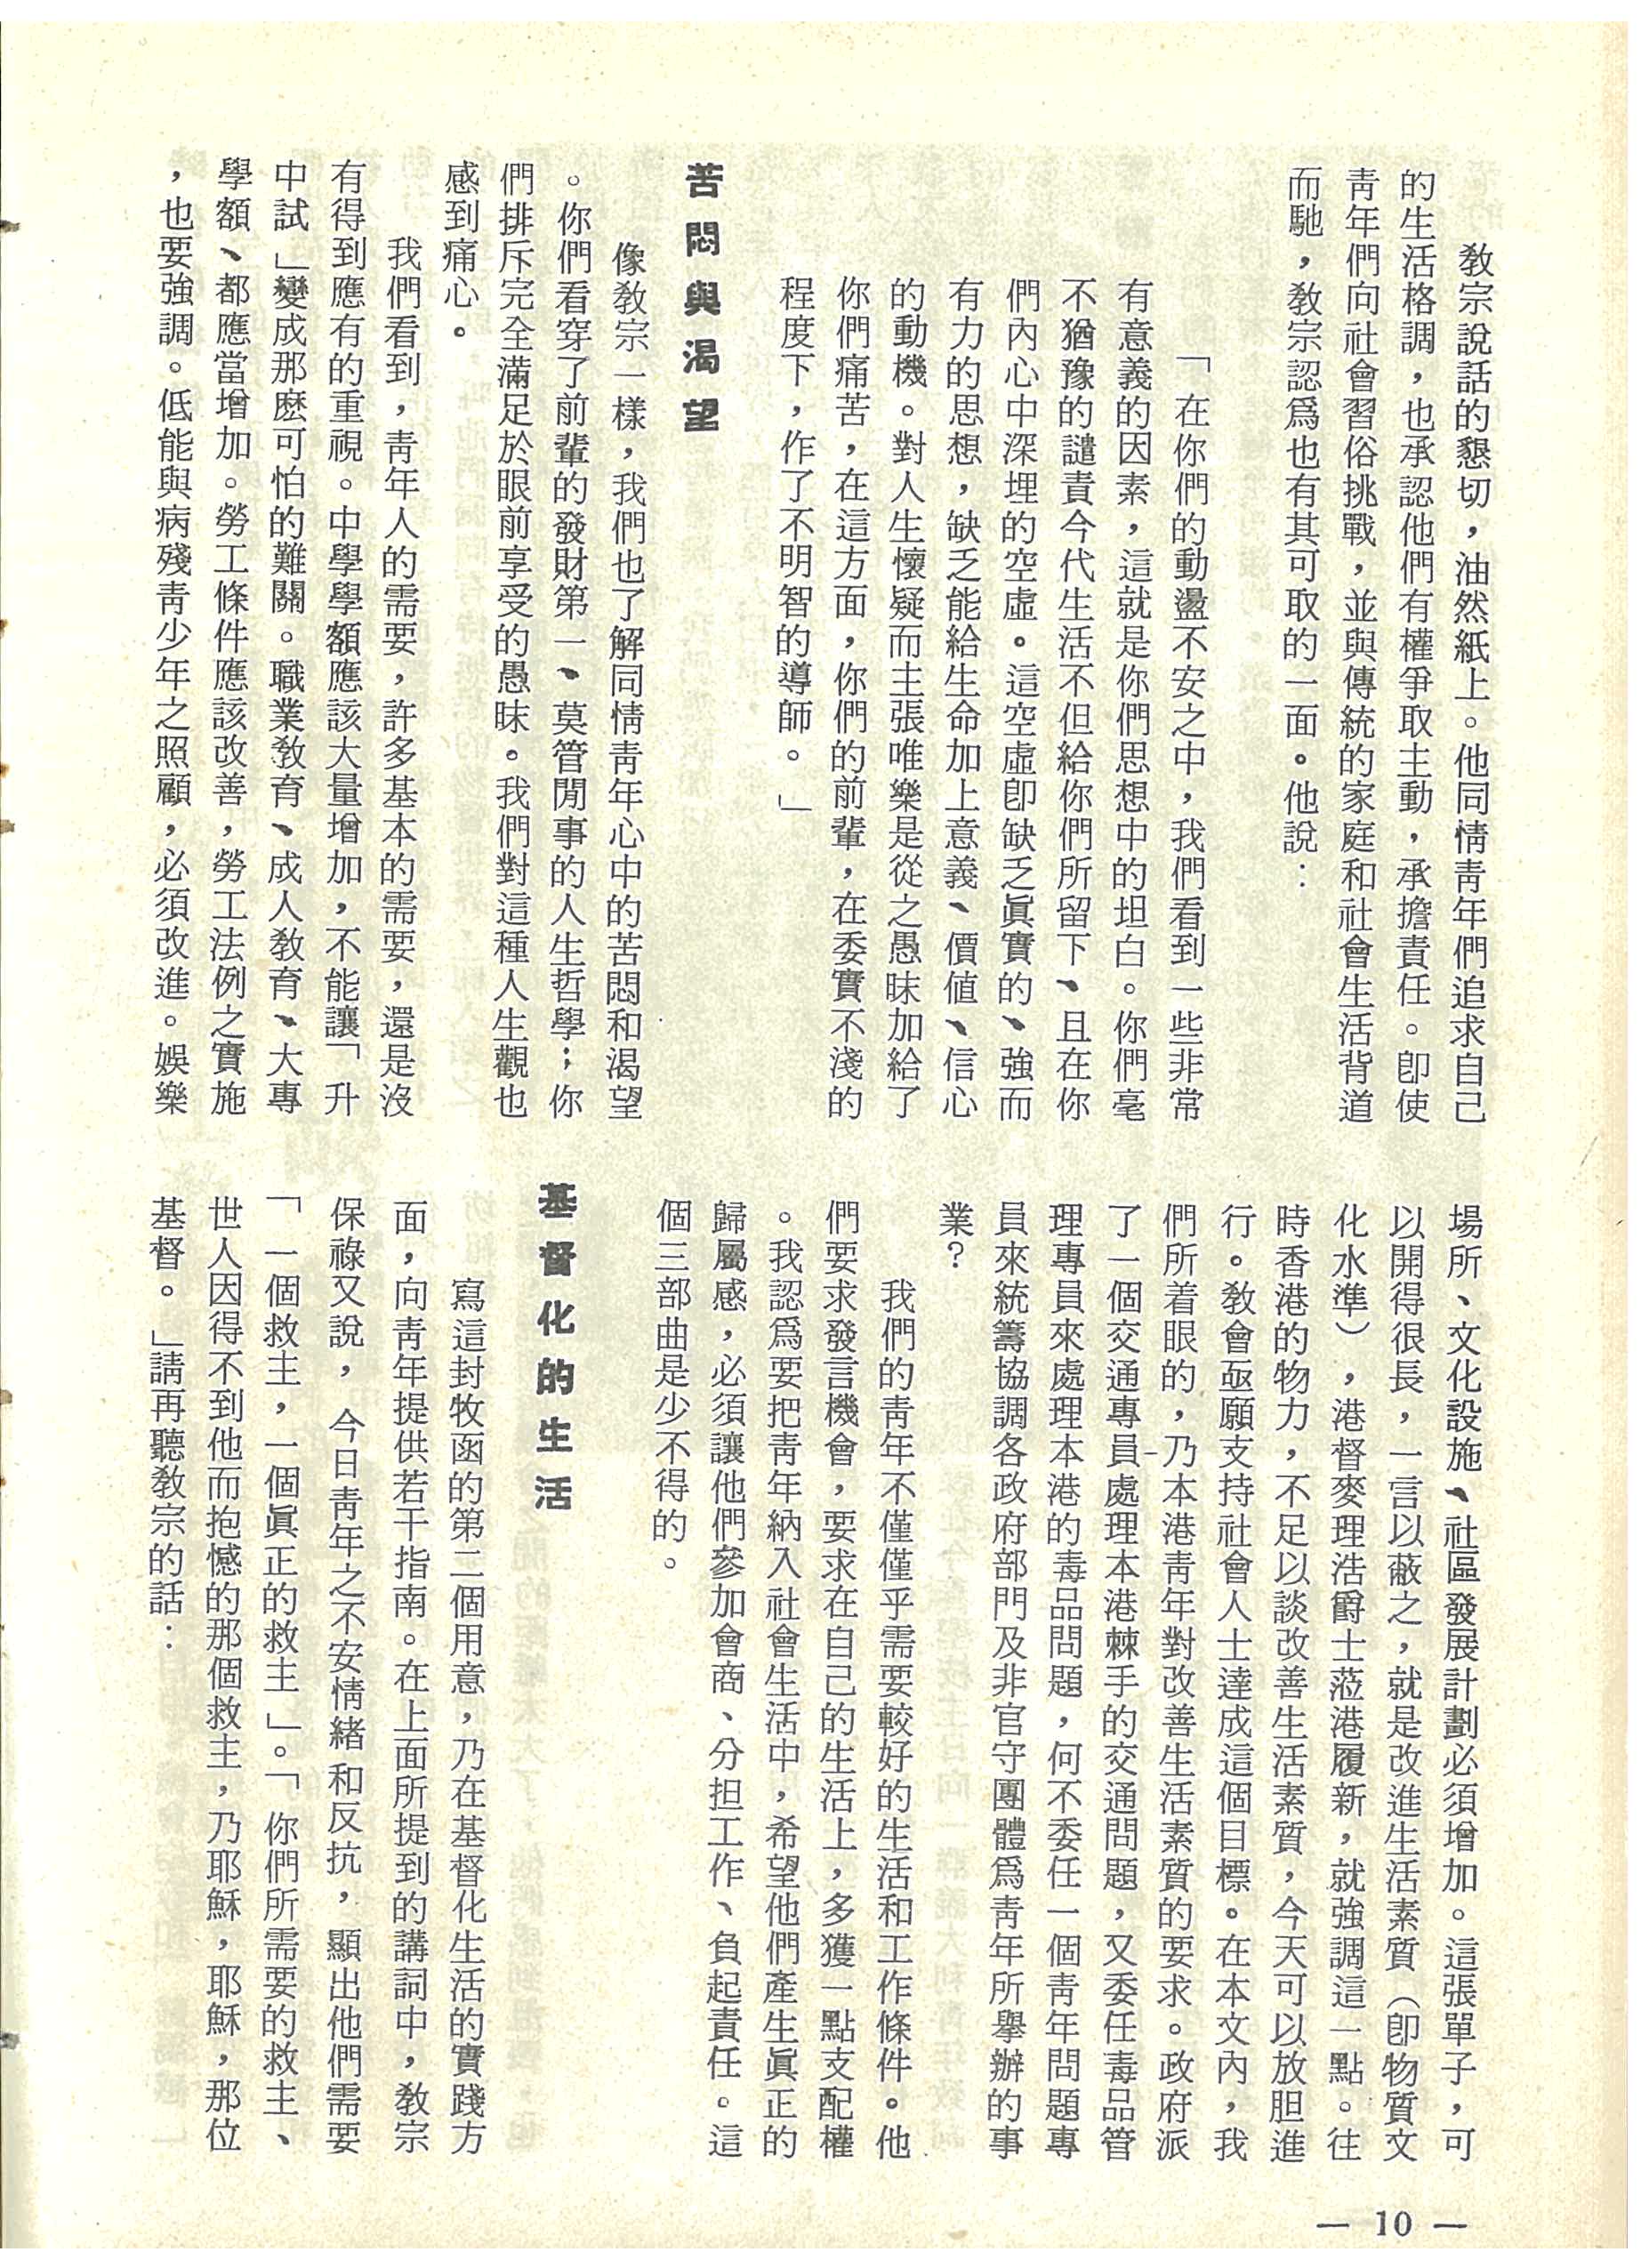 教宗說話的懇切，油然紙上。他同情靑年們追求自己
的生活格調，也承認他們有權爭取主動，承擔責任。卽使
靑年們向社會習俗挑戰，並與傳統的家庭和社會生活背道
而馳，教宗認爲也有其可取的一面。他說：
「在你們的動盪不安之中，我們看到一些非常
有意義的因素，這就是你們思想中的坦白。你們毫
不猶豫的譴責今代生活不但給你們所留下、且在你
們內心中深埋的空虛。這空虛卽缺乏眞實的、強而
有力的思想，缺乏能給生命加上意義、價値、信心
的動機。對人生懷疑而主張唯樂是從之愚昧加給了
你們痛苦，在這方面，你們的前輩，在委實不淺的
程度下，作了不明智的導師。」
苦悶與渴望
像教宗一樣，我們也了解同情靑年心中的苦悶和渴望
。你們看穿了前輩的發財第一、莫管閒事的人生哲學；你
們排斥完全滿足於眼前享受的愚昧。我們對這種人生觀也
感到痛心。
我們看到，靑年人的需要，許多基本的需要，還是沒
有得到應有的重視。中學學額應該大量增加，不能讓「升
中試」變成那麽可怕的難關。職業教育、成人教育、大專
學額、都應當增加。勞工條件應該改善，勞工法例之實施
，也要強調。低能與病殘靑少年之照顧，必須改進。娛樂
場所、文化設施、社區發展計劃必須增加。這張單子，可
以開得很長，一言以蔽之，就是改進生活素質（卽物質文
化水準），港督麥理浩爵士蒞港履新，就強調這一點。往
時香港的物力，不足以談改善生活素質，今天可以放胆進
行。教會亟願支持社會人士達成這個目標。在本文內，我
們所着眼的，乃本港靑年對改善生活素質的要求。政府派
了一個交通專員處理本港棘手的交通問題，又委任毒品管
理專員來處理本港的毒品問題，何不委任一個靑年問題專
員來統籌協調各政府部門及非官守團體爲靑年所舉辦的事
業？
我們的靑年不僅僅乎需要較好的生活和工作條件。他
們要求發言機會，要求在自己的生活上，多獲一點支配權
。我認爲要把靑年納入社會生活中，希望他們產生眞正的
歸屬感，必須讓他們參加會商、分担工作、負起責任。這
個三部曲是少不得的。
基督化的生活
寫這封牧函的第二個用意，乃在基督化生活的實踐方
面，向靑年提供若干指南。在上面所提到的講詞中，教宗
保祿又說，今日靑年之不安情緒和反抗，顯出他們需要
「一個救主，一個眞正的救主」。「你們所需要的救主、
世人因得不到他而抱憾的那個救主，乃耶穌，耶穌，那位
基督。」請再聽教宗的話：
— 10 —